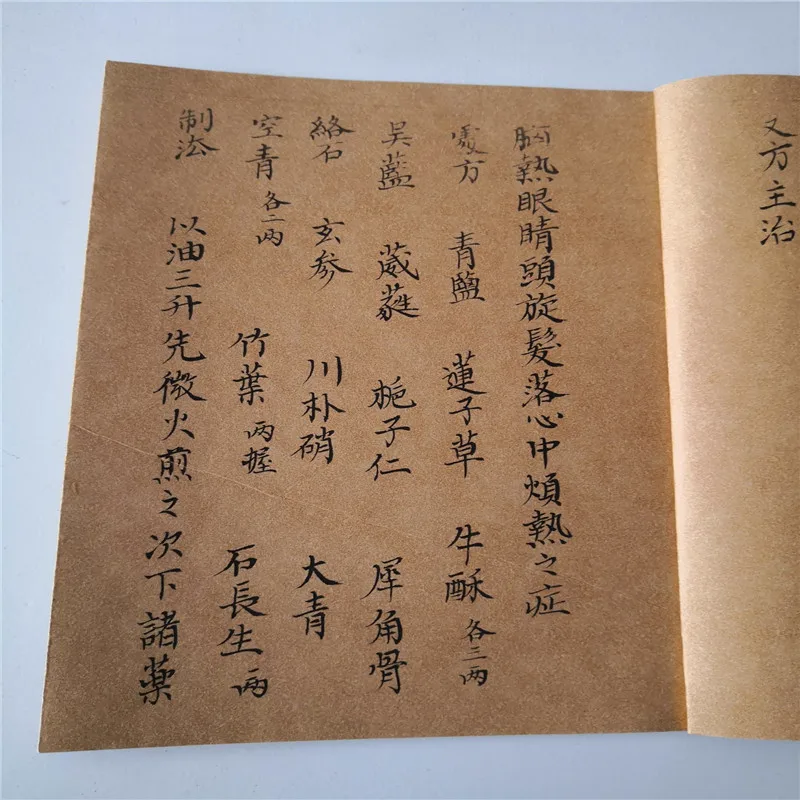 又方主治
胸熱眼睛頭旋髮落心中煩熱之症
處方 青鹽 蓮子草 牛酥各三两
吳藍 葳蕤 梔子仁 犀角骨
絡石 玄参 川朴硝 大青
空青各二两 竹葉两握 石長生两
制法 以油三升先微火煎之次下諸薬